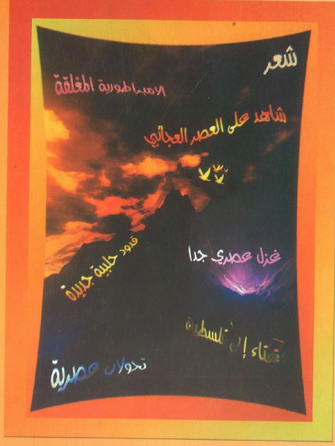 شعر
الامبراطورية المغلقة
شاهد على العصر العجائبي
غزل عصري جدا
قدود حلبية جديدة
إلى فلسطين
تحولات عصرية